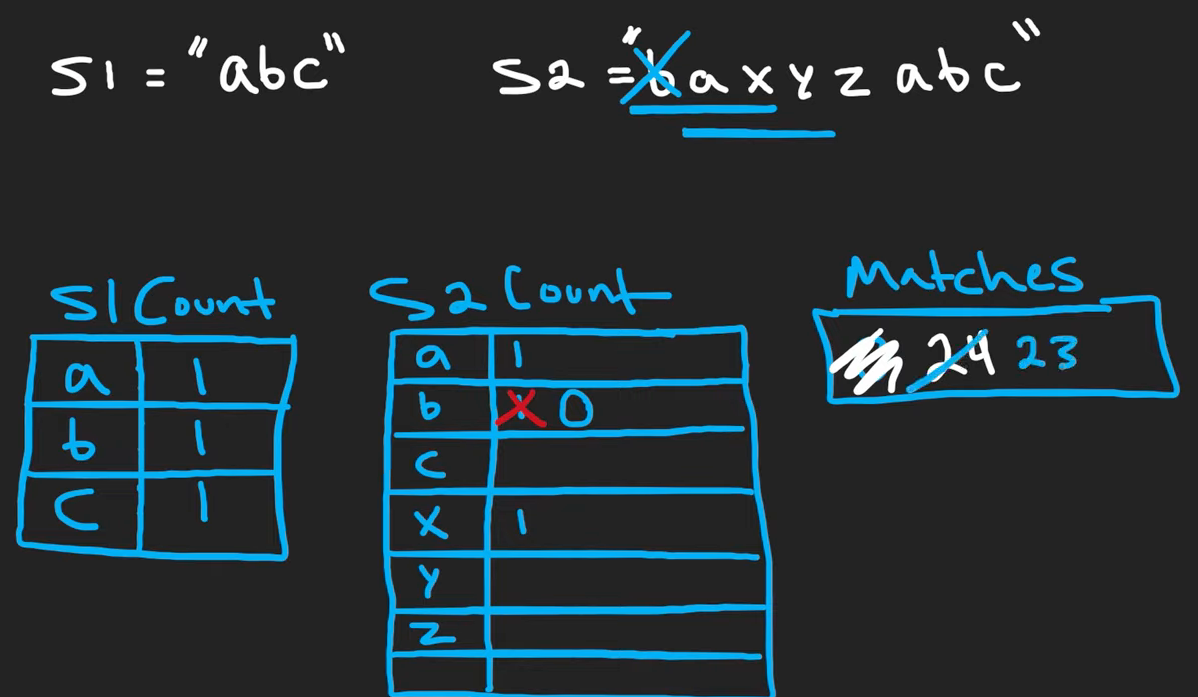 S1 = "abc"
S2 = "baxyzabc"
S1 Count
a 1
b 1
c 1
S2 Count
a 1
b 1 0
c
x 1
y
z
Matches
24 23